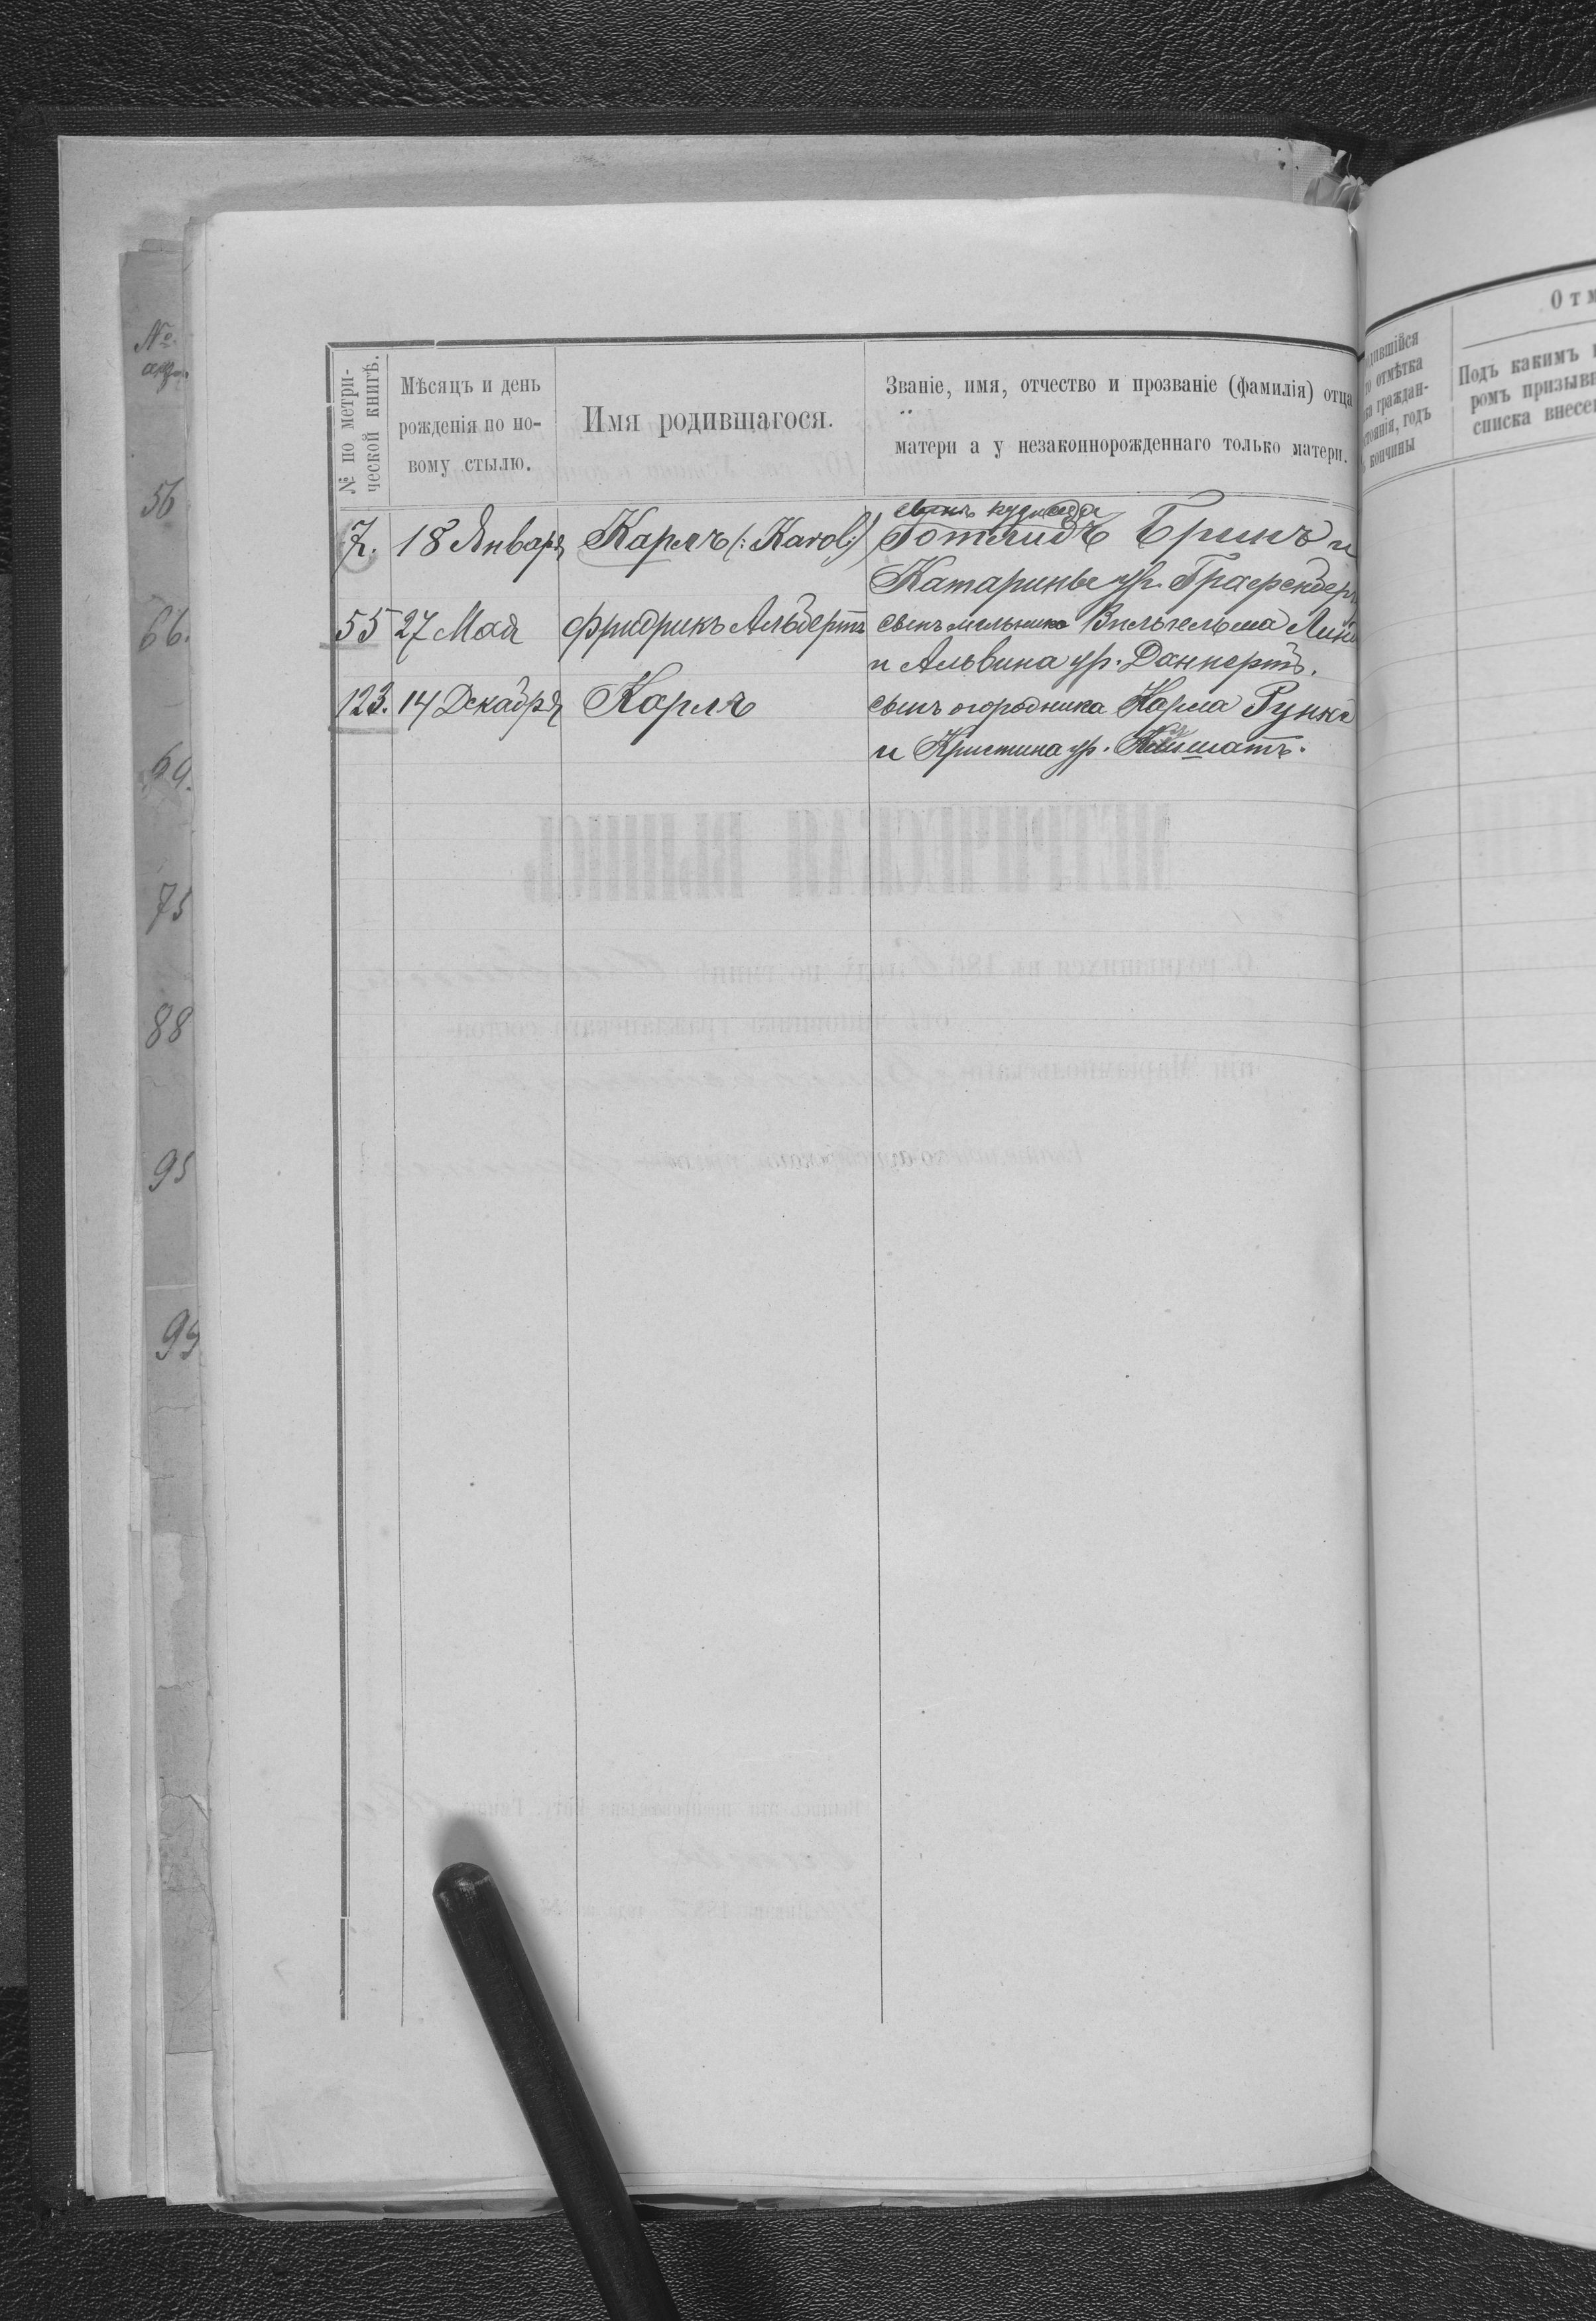 №
56
66.
69.
75
88
95
99
№ по метри-
ческой книгѣ.
Мѣсяцъ и день
рожденія по но-
вому стылю.
Имя родившагося.
Званіе, имя, отчество и прозваніе (фамилія) отца
матери а у незаконнорожденнаго только матери.
7. 18 Января Карлъ (: Karol:)
сынъ кузнеца
Готлибъ Бринъ и
Катарины ур. Графендер
55 27 Мая Фридрикъ Альбертъ сынъ мельника Вильгельма
и Альвина ур. Даннертъ.
123. 14 Декабря Карлъ сынъ огородника Карла Рунке
и Кристина ур.
Отм
дившійся
то отмѣтка
граждан-
стоянія, годъ
кончины
Подъ какимъ
ромъ призывн
списка внесе